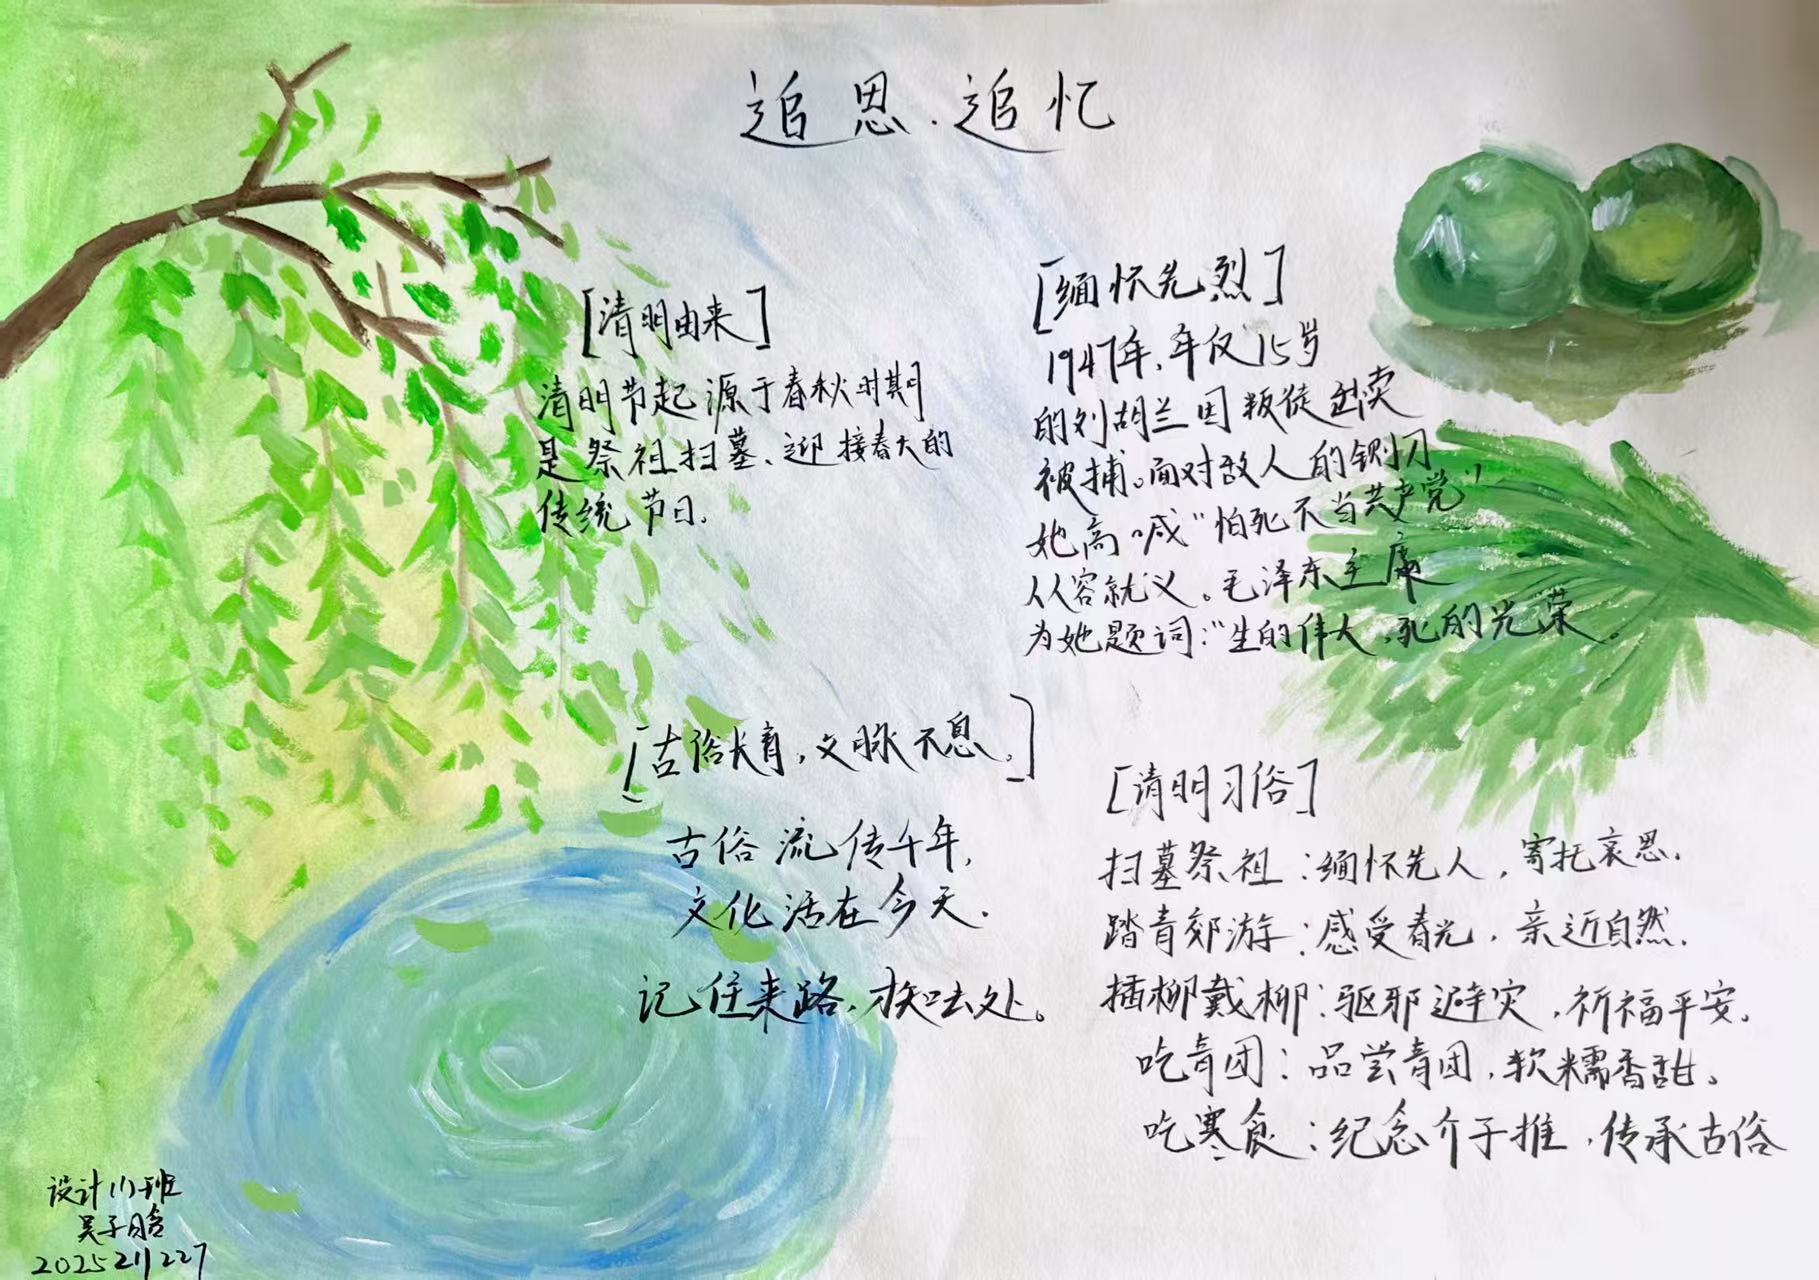 追思.追忆
[清明由来]
清明节起源于春秋时期
是祭祖扫墓、迎接春天的
传统节日.
[缅怀先烈]
1947年,年仅15岁
的刘胡兰因叛徒出卖
被捕。面对敌人的铡刀
她高喊"怕死不当共产党"
从容就义。毛泽东主席
为她题词:"生的伟大,死的光荣。
[古俗长青,文脉不息.]
古俗流传千年,
文化活在今天.
记住来路,去处。
[清明习俗]
扫墓祭祖:缅怀先人,寄托哀思.
踏青郊游:感受春光,亲近自然.
插柳戴柳:驱邪避灾,祈福平安.
吃青团:品尝青团,软糯香甜.
吃寒食:纪念介子推,传承古俗
设计(1)班
吴子晗
20252111227